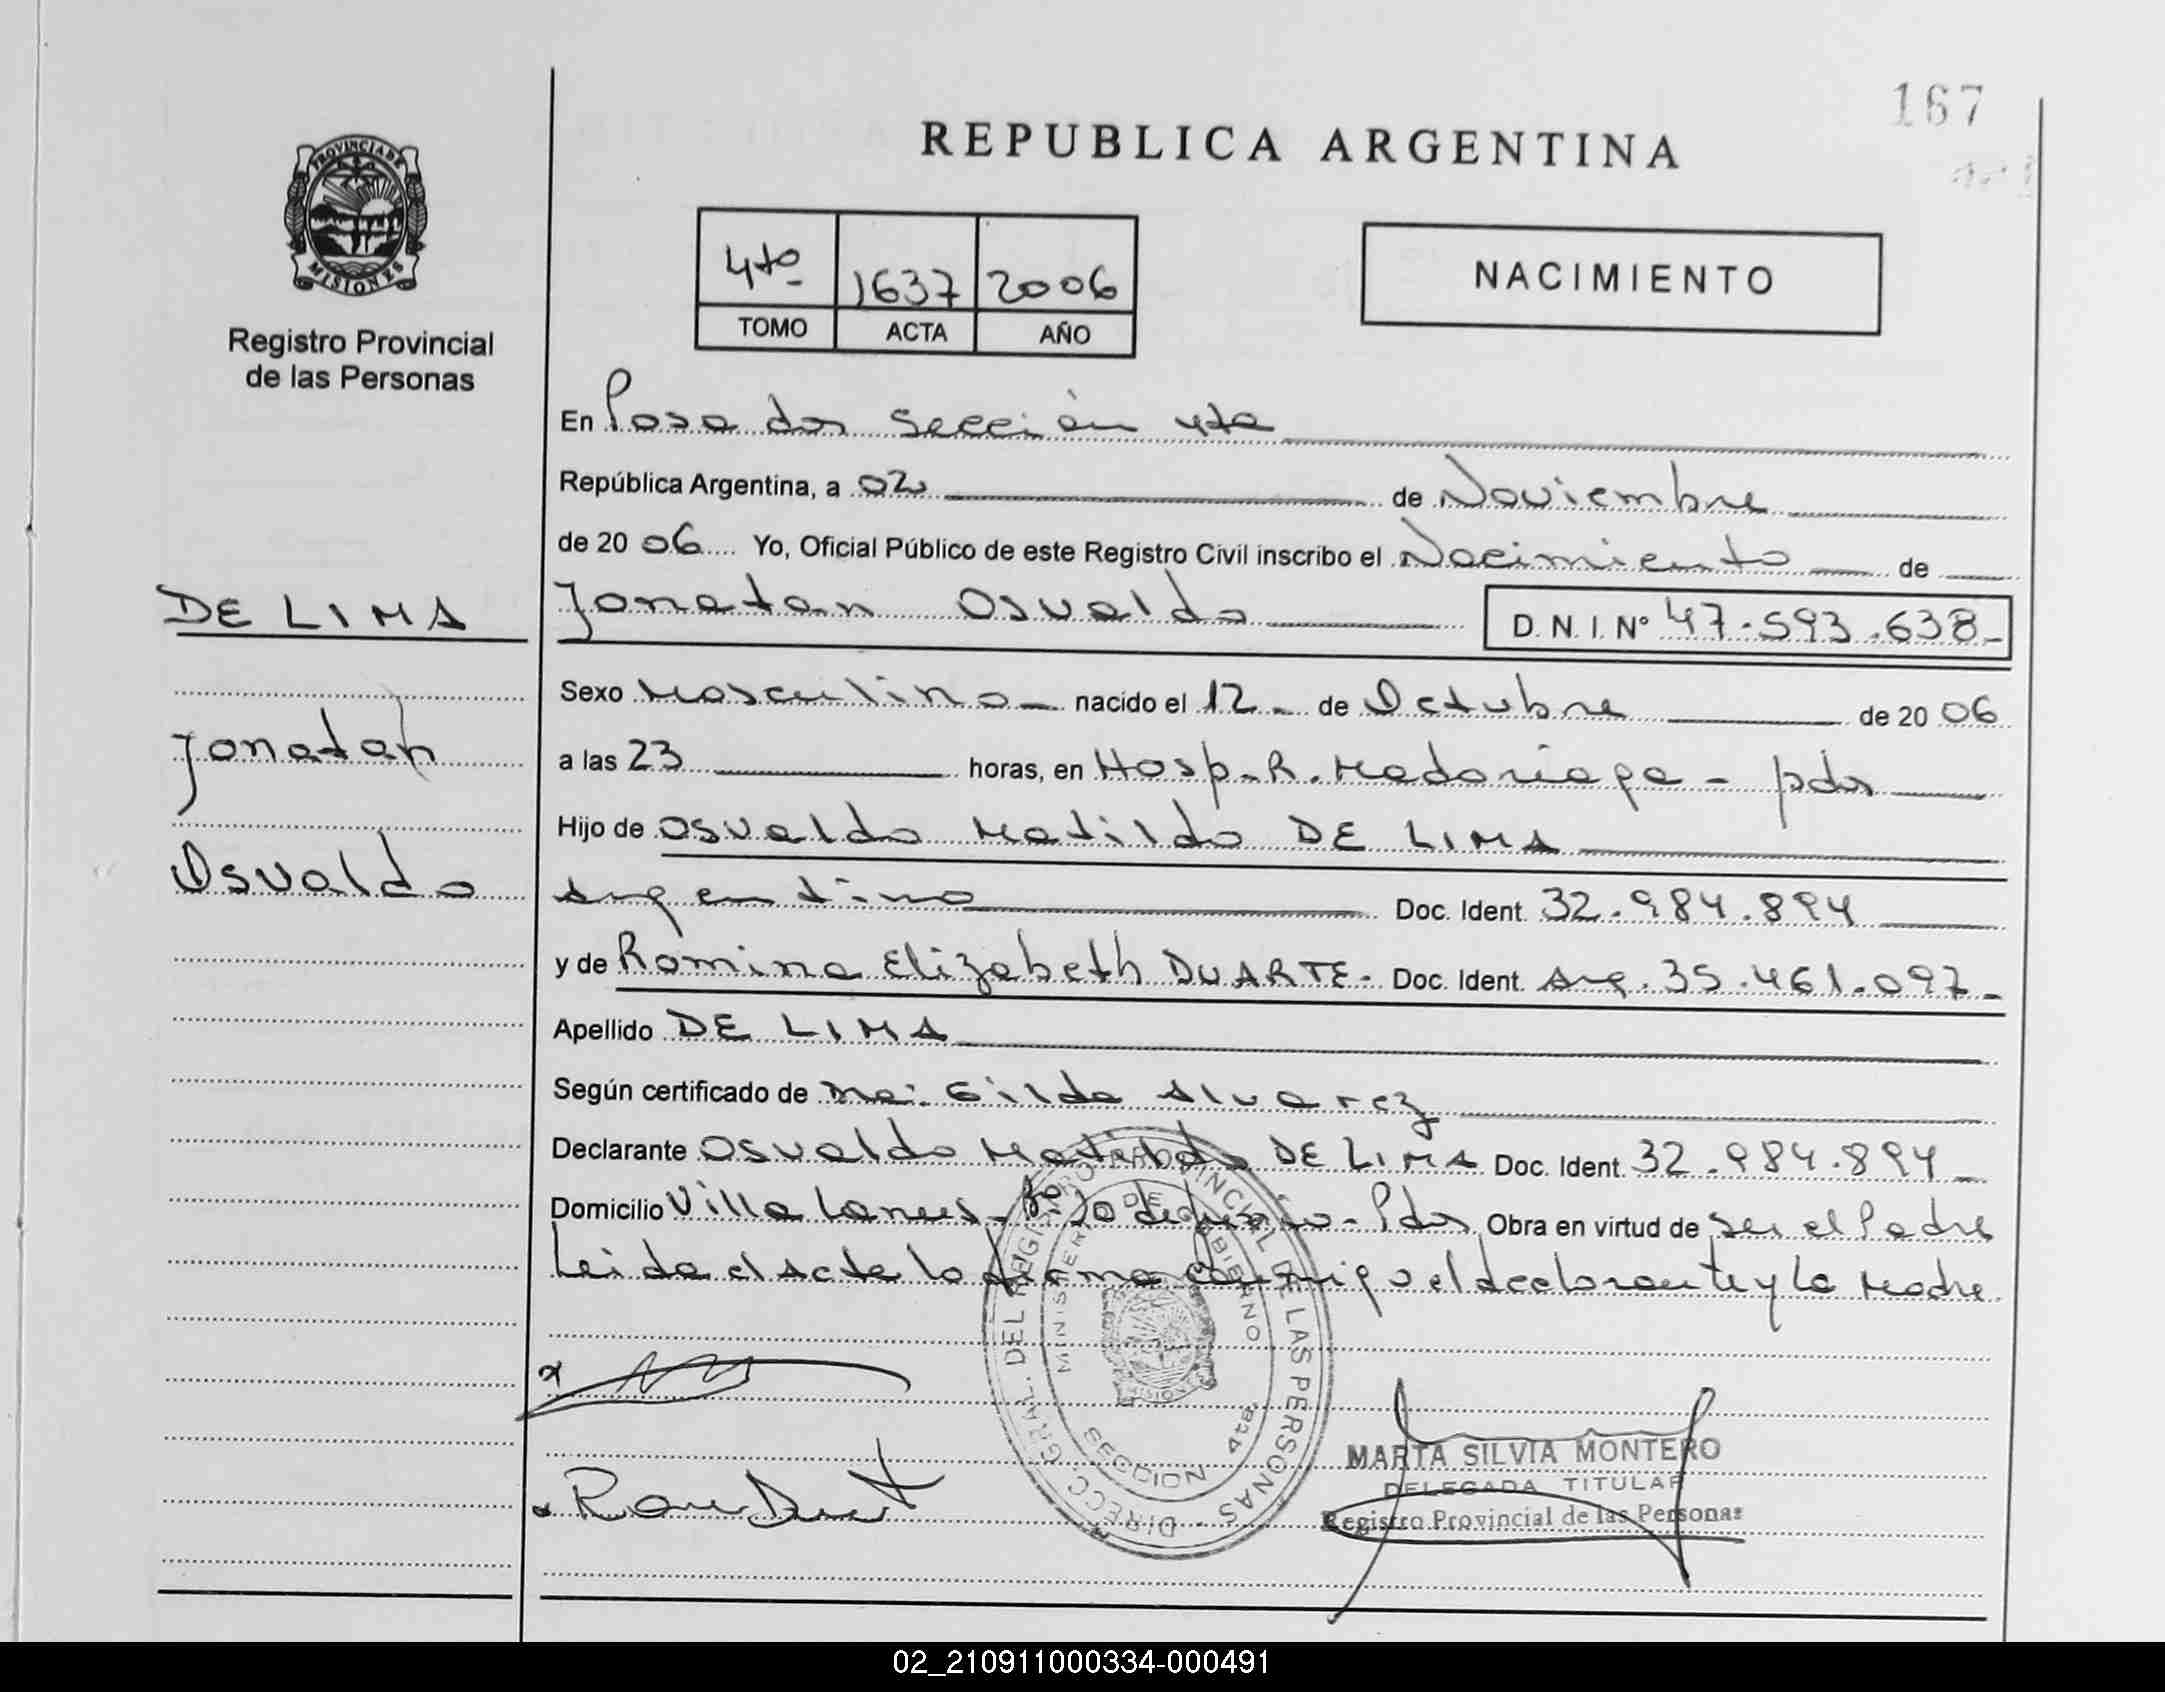 167
REPUBLICA ARGENTINA
PROVINCIA DE
MISIONES
Registro Provincial
de las Personas
4to 1637 2006
TOMO ACTA AÑO
NACIMIENTO
En Posadas Sección 4ta
República Argentina, a 02 de Noviembre
de 2006 Yo, Oficial Público de este Registro Civil inscribo el Nacimiento de
DE LIMA
Jonatan Osvaldo D. N. I. Nº 47.593.638-
Sexo Masculino nacido el 12 de Octubre de 2006
Jonatan
a las 23 horas, en Hosp. R. Madariaga - pdas
Hijo de Osvaldo Matildo DE LIMA
Osvaldo
Argentino Doc. Ident. 32.984.894
y de Romina Elizabeth DUARTE- Doc. Ident. Arg. 35.461.097-
Apellido DE LIMA
Según certificado de Gilda Alvarez
Declarante Osvaldo Matildo DE LIMA Doc. Ident. 32.984.894
Domicilio Villa Lanus - Bo 20 de Junio - Pdas Obra en virtud de ser el Padre
Leida el Acta la firma conmigo el declarante y la Madre
DIRECC. GRAL. DEL REGISTRO PROVINCIAL DE LAS PERSONAS
MINISTERIO DE GOBIERNO
MISIONES
SECCION 4ta.
MARTA SILVIA MONTERO
DELEGADA TITULAR
Registro Provincial de las Personas
02_210911000334-000491